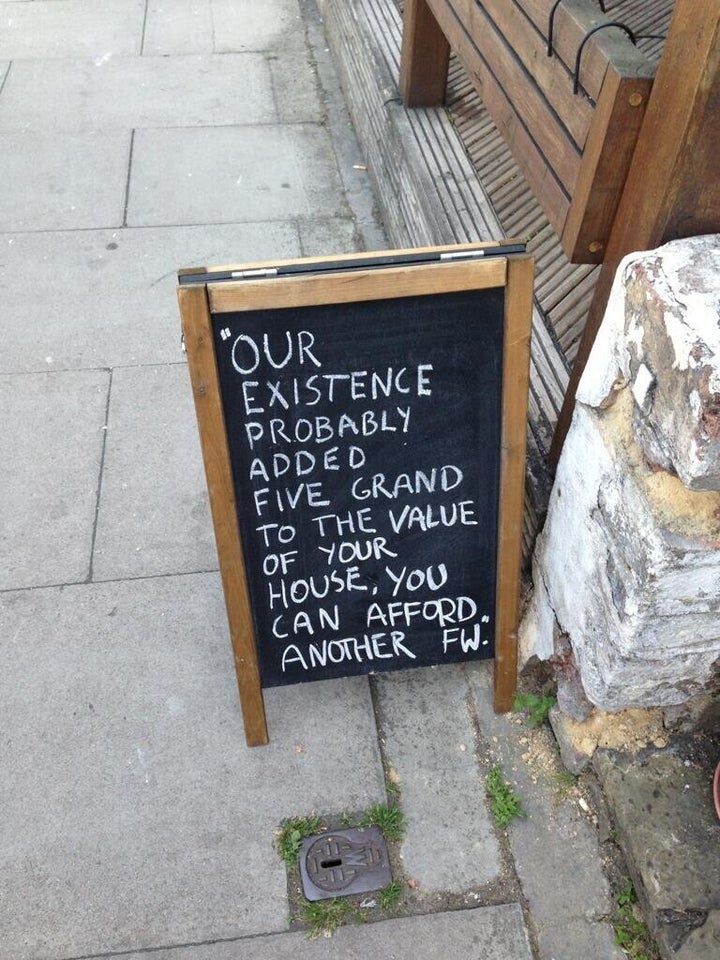 "OUR
EXISTENCE
PROBABLY
ADDED
FIVE GRAND
TO THE VALUE
OF YOUR
HOUSE, YOU
CAN AFFORD
ANOTHER FW."